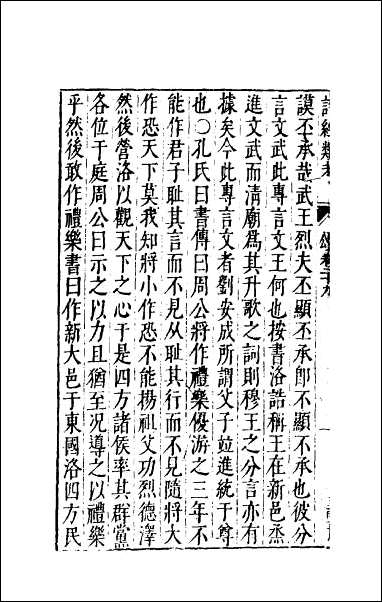 詩經類考 頌卷二十九
謨丕承哉武王烈夫丕顯丕承即不顯不承也彼分
言文武此專言文王何也按書洛誥稱王在新邑烝
進文武而清廟爲其升歌之詞則穆王之分言亦有
據矣今此專言文者劉安成所謂父子竝進統于尊
也〇孔氏曰書傳曰周公將作禮樂優游之三年不
能作君子恥其言而不見从恥其行而不見隨將大
作恐天下莫我知將小作恐不能揚祖父功烈德澤
然後營洛以觀天下之心于是四方諸侯率其群黨
各位于庭周公曰示之以力且猶至况導之以禮樂
乎然後敢作禮樂書曰作新大邑于東國洛四方民